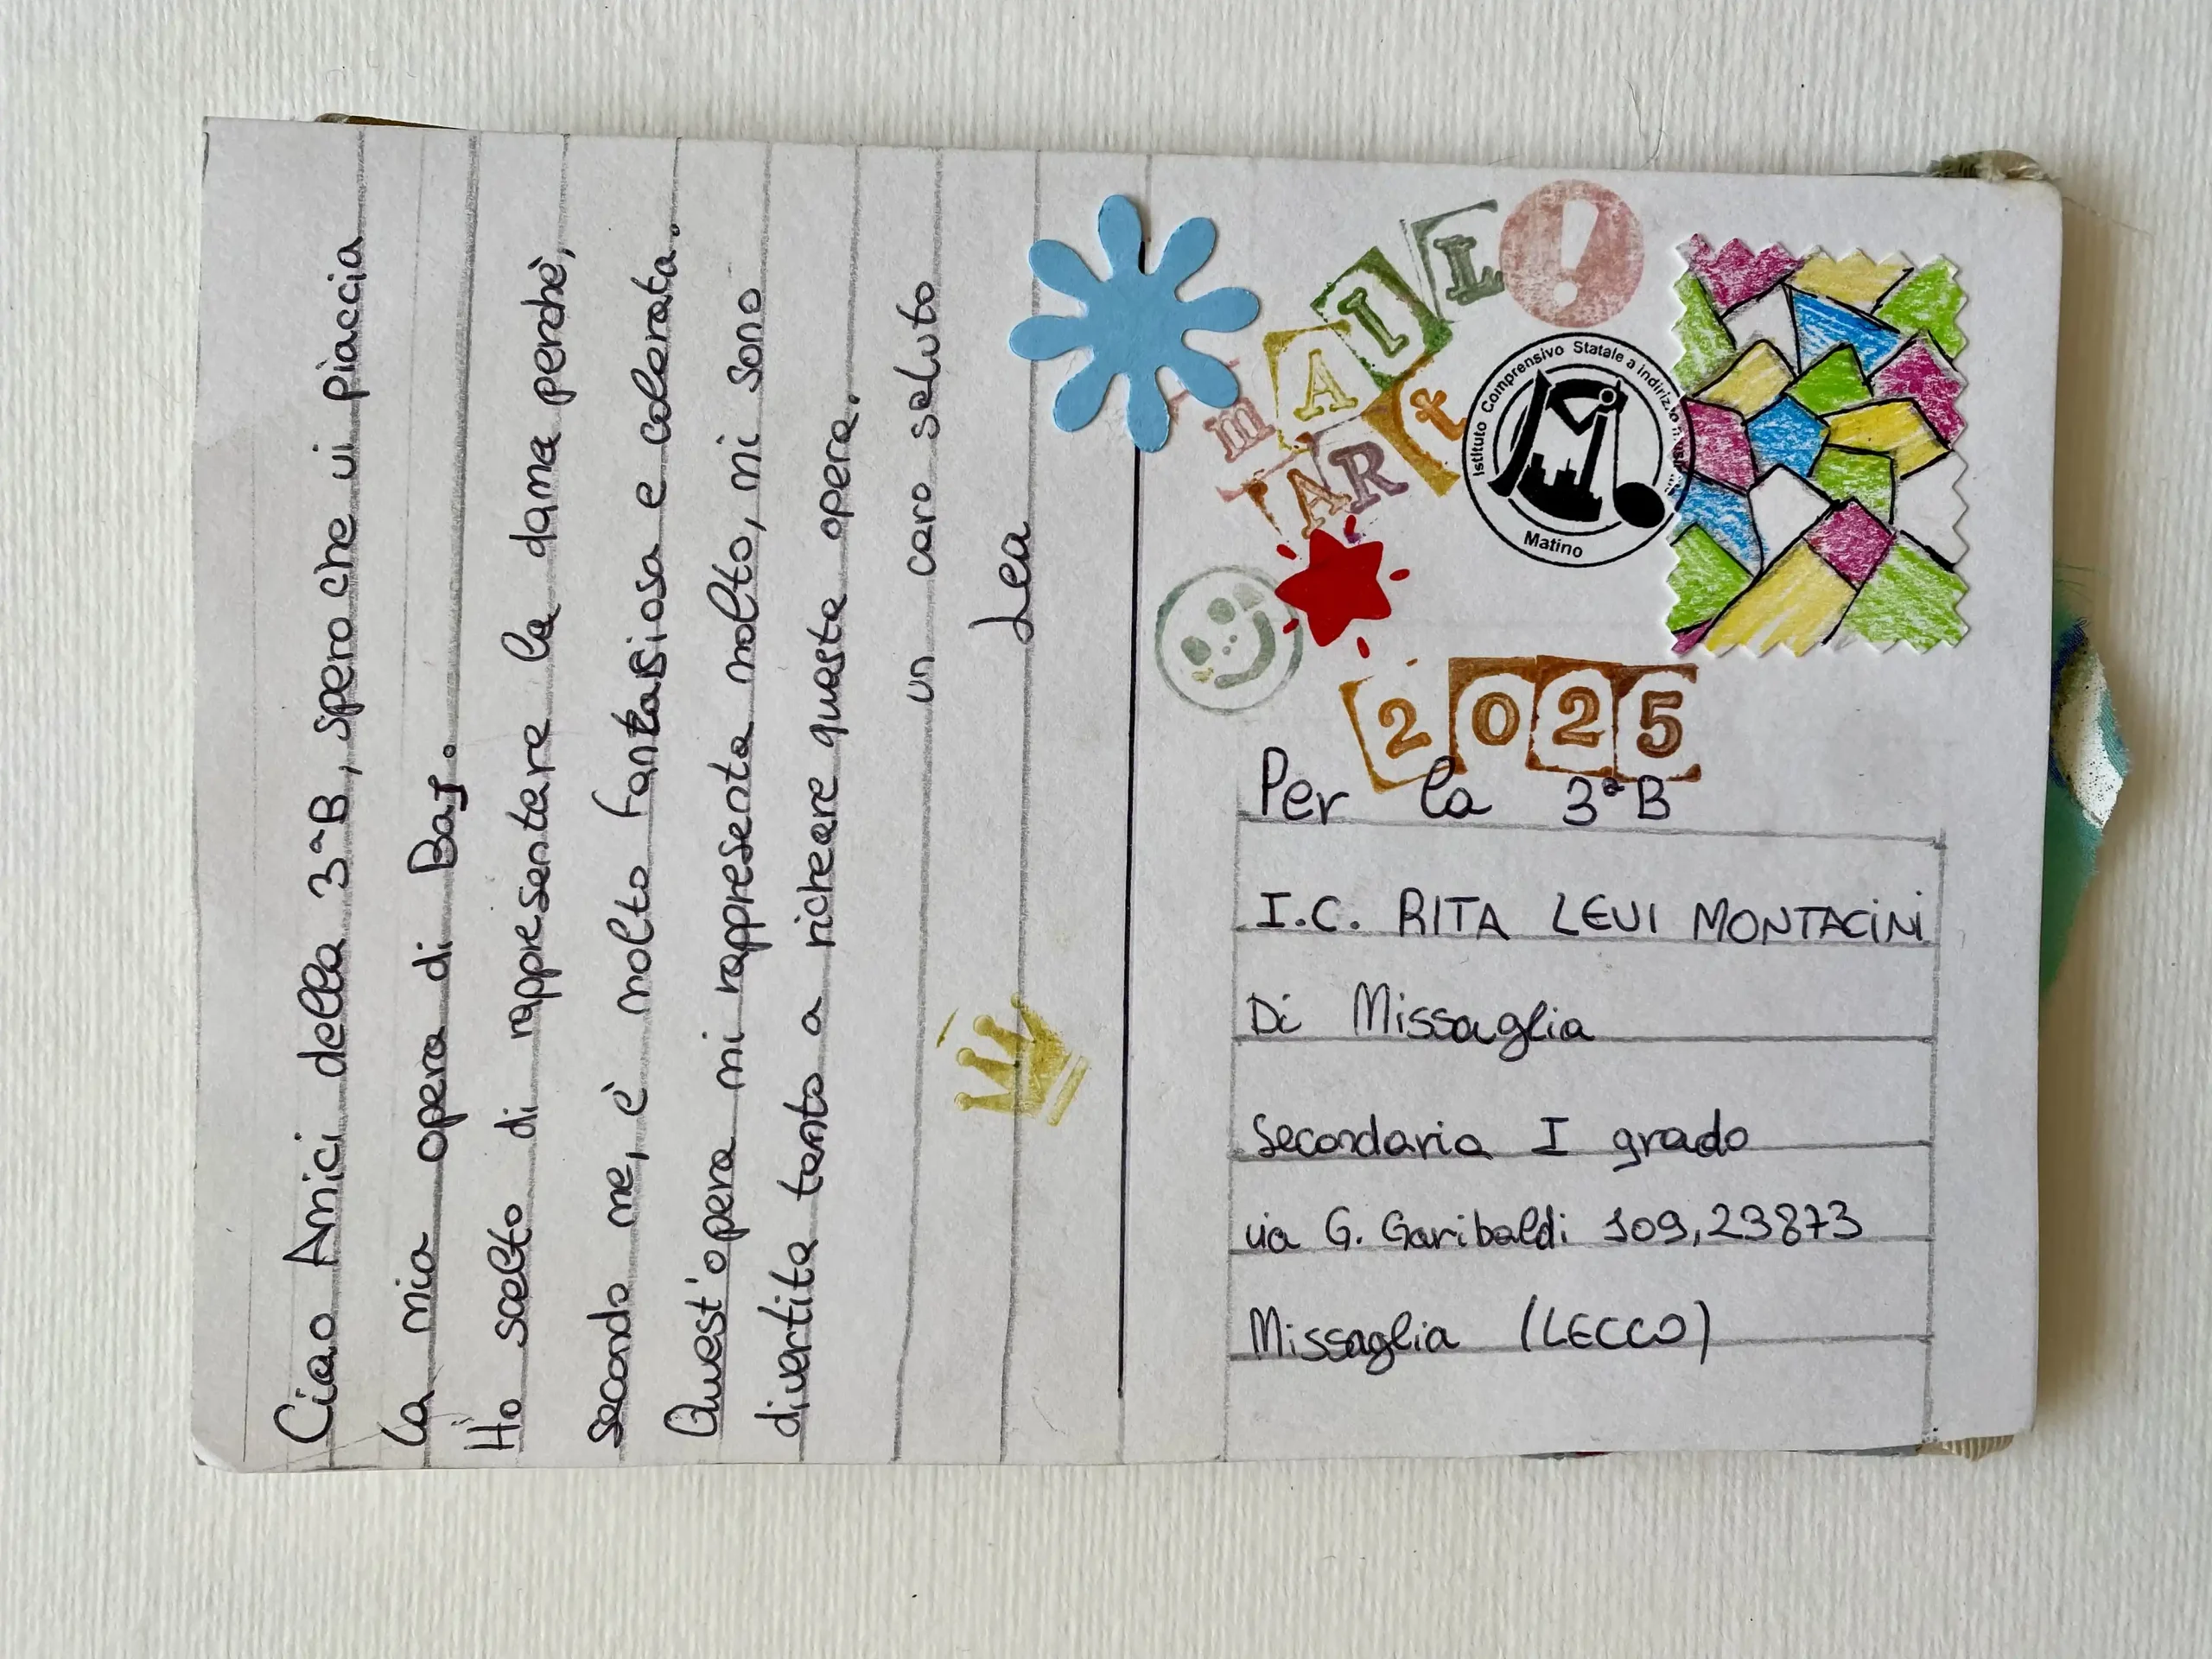 Ciao Amici della 3ªB, spero che vi piaccia
la mia opera di Baj.
Ho scelto di rappresentare la dama perchè,
secondo me, è molto fantasiosa e colorata.
Quest'opera mi rappresenta molto, mi sono
divertita tanto a richeare questa opera.
un caro saluto
Lea
mAIL!
ARt
Istituto Comprensivo Statale a indirizzo
Matino
2025
Per la 3ªB
I.C. RITA LEVI MONTACINI
Di Missaglia
Secondaria I grado
via G. Garibaldi 109,23873
Missaglia (LECCO)